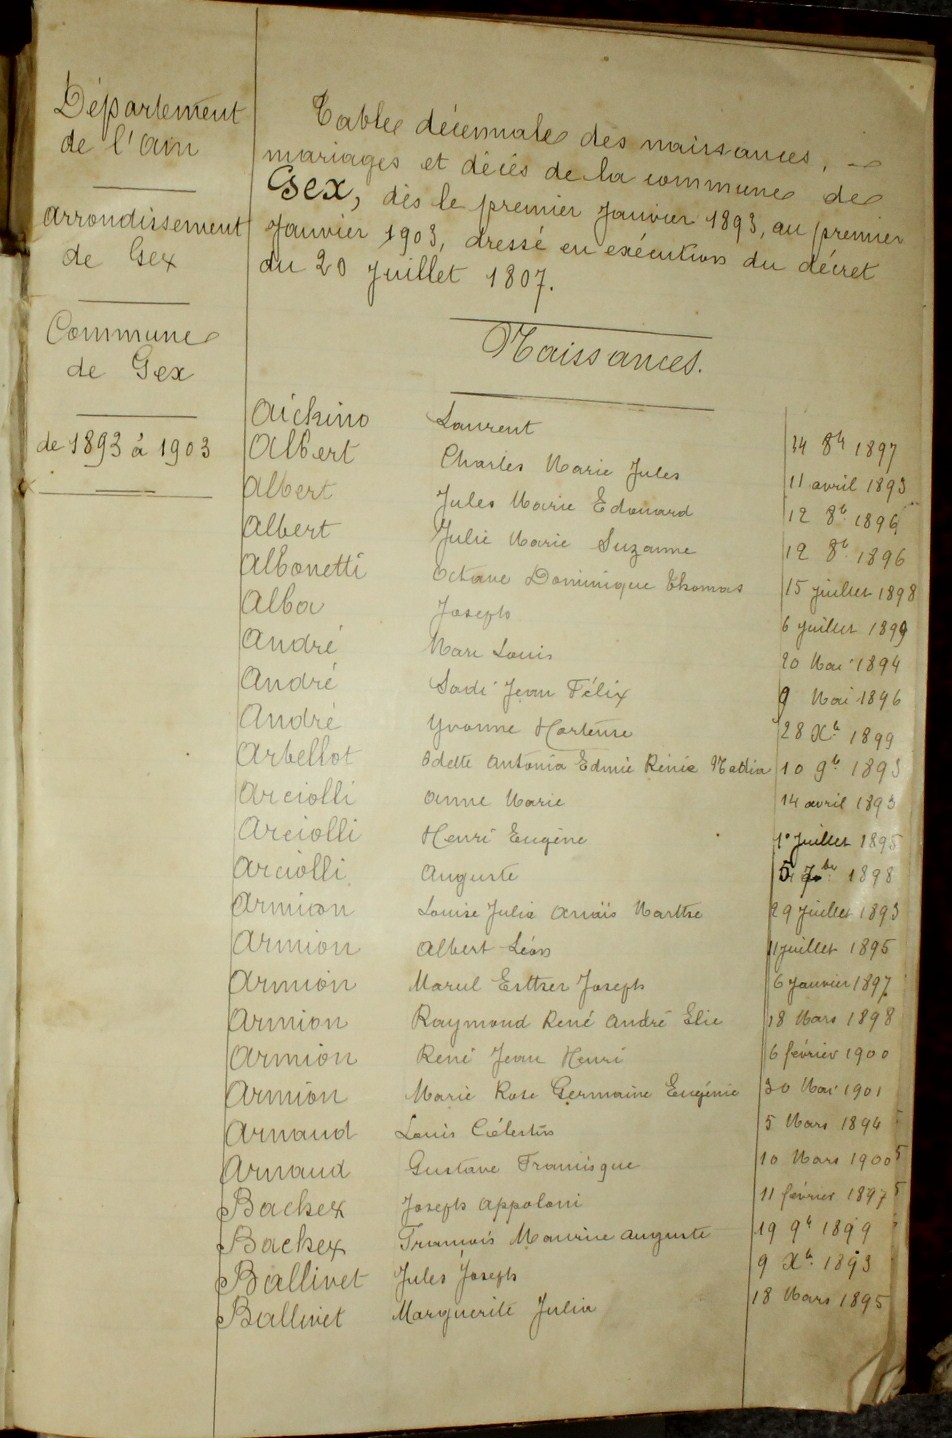 Département
de l'Ain
Arrondissement
de Gex
Commune
de Gex
de 1893 à 1903
Table décennale des naissances,
mariages et décès de la commune de
Gex, dès le premier Janvier 1893, au premier
Janvier 1903, dressé en exécution du décret
du 20 Juillet 1807.
Naissances.
Aickino Laurent 8bre 1897
Albert Charles Marie Jules 11 avril 1893
Albert Jules Marie Edouard 12 8b. 1896
Albert Julie Marie Suzanne 12 8b. 1896
Albonetti Octave Dominique Thomas 15 juillet 1898
Alba Joseph 6 juillet 1899
André Marc Louis 20 Mai 1894
André Sadi Jean Félix 9 Mai 1896
André Yvonne Hortense 28 Xb. 1899
Arbellot Odette Antonia Edmée Rénée 10 9b. 1893
Arciolli Anne Marie 14 avril 1893
Arciolli Henri Eugène 1er Juillet 1895
Arciolli Auguste 5 7bre 1898
Armion Louise Julie Anaïs Marthe 29 juillet 1893
Armion Albert Léon 11 juillet 1895
Armion Marcel Esther Joseph 6 Janvier 1897
Armion Raymond René André Elie 18 Mars 1898
Armion René Jean Henri 6 février 1900
Armion Marie Rose Germaine Eugénie 30 Mai 1901
Arnaud Louis Célestin 5 Mars 1894
Arnaud Gustave Francisque 10 Mars 1900
Backex Joseph Appoloni 11 février 1897
Backex François Maurice Auguste 19 9b 1899
Ballivet Jules Joseph 9 Xb. 1893
Ballivet Marguerite Julia 18 Mars 1895